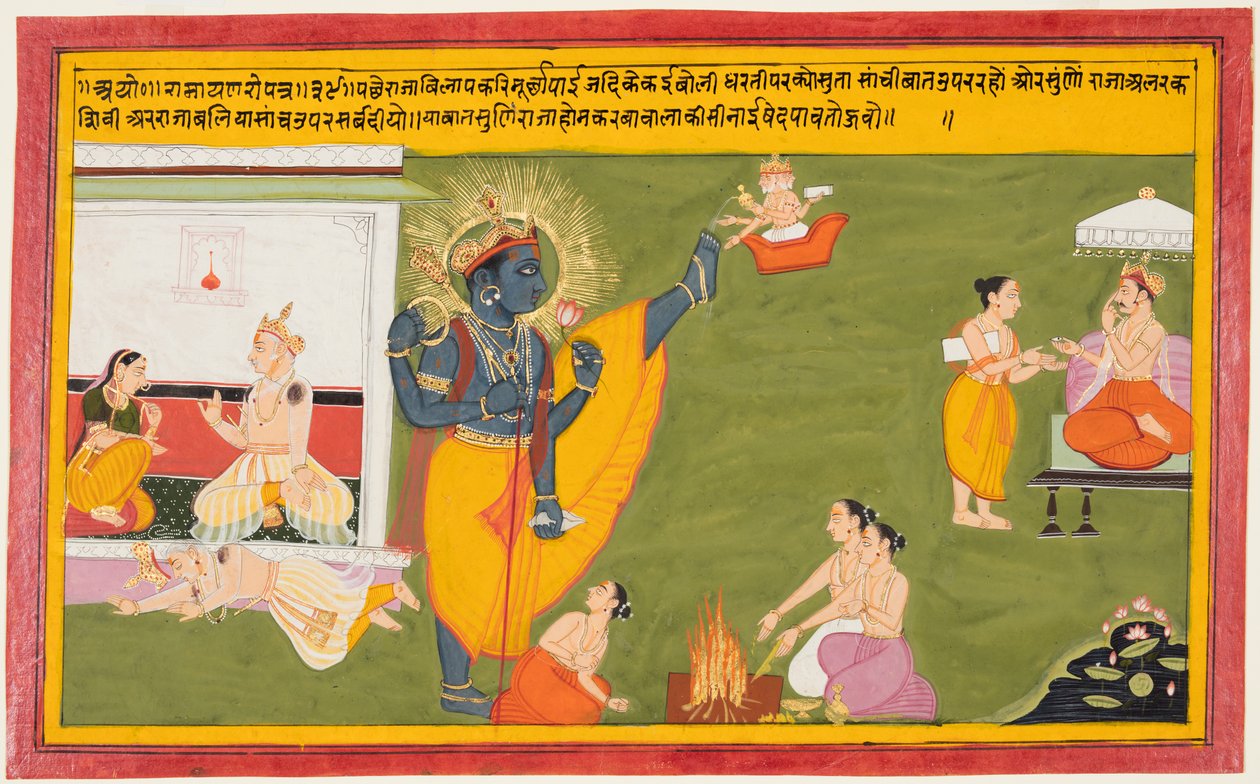 ॥ अयो॰॥ रामायण रो पत्र॥३९॥ पछै राजा बिलाप करि मूर्छा पाई जदि केकई बोली धरती पर क्यो सुता सांची बात उपर रहों ओर सुंणों राजा अलरक
शिवी अर राजा बलि या सांच उपर सर्ब दीयो॥ या बात सुणि राजा होम करबा वाला की सी नाई षेद पावतो ऊवो॥ ॥